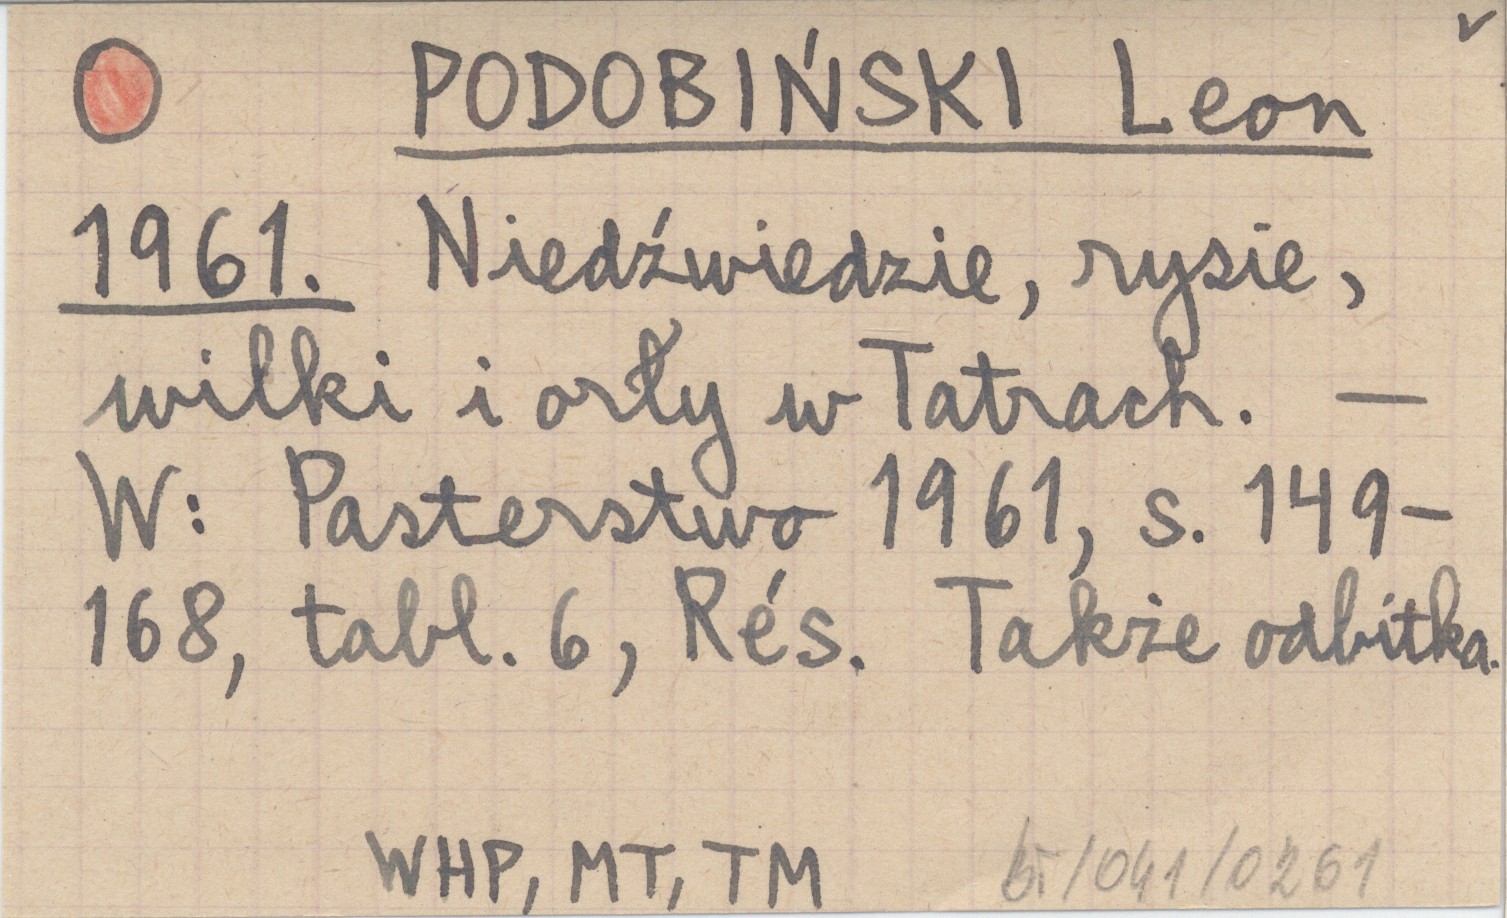 PODOBIŃSKI Leon
1961. Niedźwiedzie, rysie,
wilki i orły w Tatrach. —
W: Pasterstwo 1961, s. 149-
168, tabl. 6, Rés. Także odbitka.
WHP, MT, TM
bt/041/0261